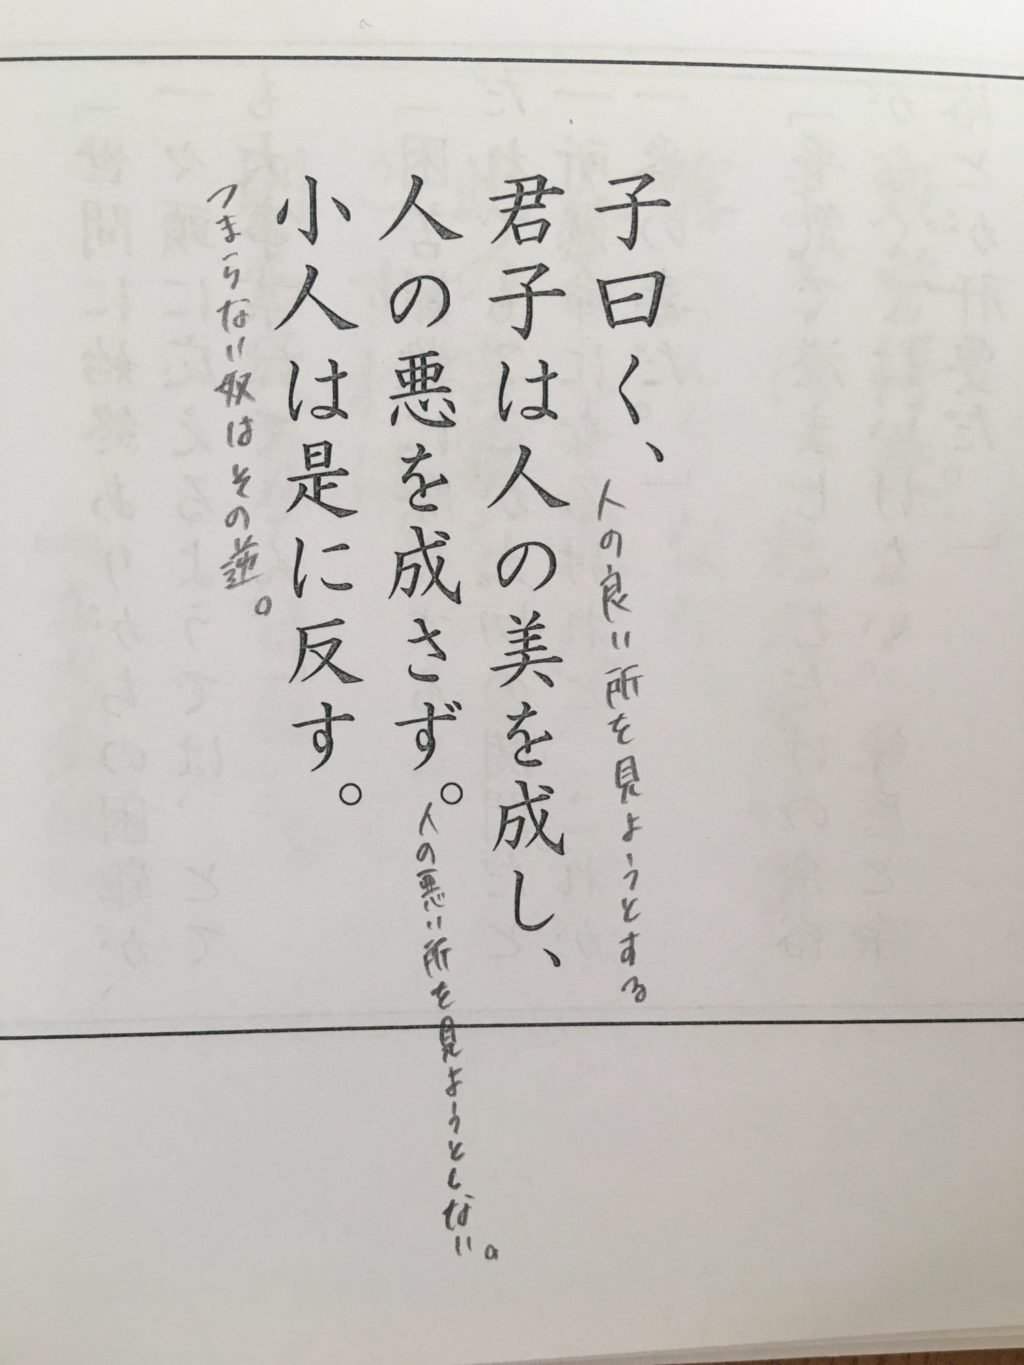 子曰く、
人の良い所を見ようとする
君子は人の美を成し、
人の悪を成さず。
人の悪い所を見ようとしない。
小人は是に反す。
つまらない奴はその逆。